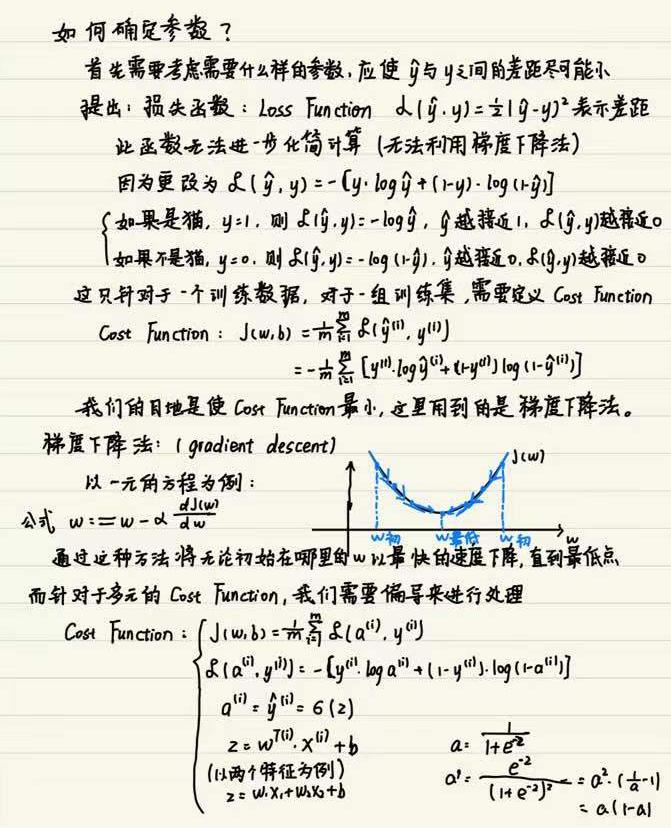 如何确定参数？
首先需要考虑需要什么样的参数，应使 ŷ与 y之间的差距尽可能小
提出：损失函数：Loss Function ℒ(ŷ,y)=½(ŷ-y)² 表示差距
此函数无法进一步化简计算 (无法利用梯度下降法)
因为更改为 ℒ(ŷ,y)=-[y·logŷ+(1-y)·log(1-ŷ)]
如果是猫，y=1，则 ℒ(ŷ,y)=-logŷ，ŷ越接近1，ℒ(ŷ,y)越接近0
如果不是猫，y=0，则 ℒ(ŷ,y)=-log(1-ŷ)，ŷ越接近0，ℒ(ŷ,y)越接近0
这只针对于一个训练数据，对于一组训练集，需要定义 Cost Function
Cost Function： J(w,b)=1/m Σᵢ₌₁ᵐ ℒ(ŷ⁽ⁱ⁾,y⁽ⁱ⁾)
=-1/m Σᵢ₌₁ᵐ [y⁽ⁱ⁾·logŷ⁽ⁱ⁾+(1-y⁽ⁱ⁾)log(1-ŷ⁽ⁱ⁾)]
我们的目地是使 Cost Function 最小，这里用到的是梯度下降法。
梯度下降法：(gradient descent)
J(w)
以一元的方程为例：
公式 w:=w-α dJ(w)/dw
w初 w最低 w初 w
通过这种方法将无论初始在哪里的w以最快的速度下降，直到最低点
而针对于多元的 Cost Function，我们需要偏导来进行处理
Cost Function： J(w,b)=1/m Σᵢ₌₁ᵐ ℒ(a⁽ⁱ⁾,y⁽ⁱ⁾)
ℒ(a⁽ⁱ⁾,y⁽ⁱ⁾)=-[y⁽ⁱ⁾·log a⁽ⁱ⁾+(1-y⁽ⁱ⁾)·log(1-a⁽ⁱ⁾)]
a⁽ⁱ⁾=ŷ⁽ⁱ⁾=6(z)
z=wᵀ⁽ⁱ⁾·x⁽ⁱ⁾+b
(以两个特征为例)
z=w₁x₁+w₂x₂+b
a=1/(1+e⁻ᶻ)
a'=e⁻ᶻ/(1+e⁻ᶻ)²=a²·(1/a-1)
=a(1-a)